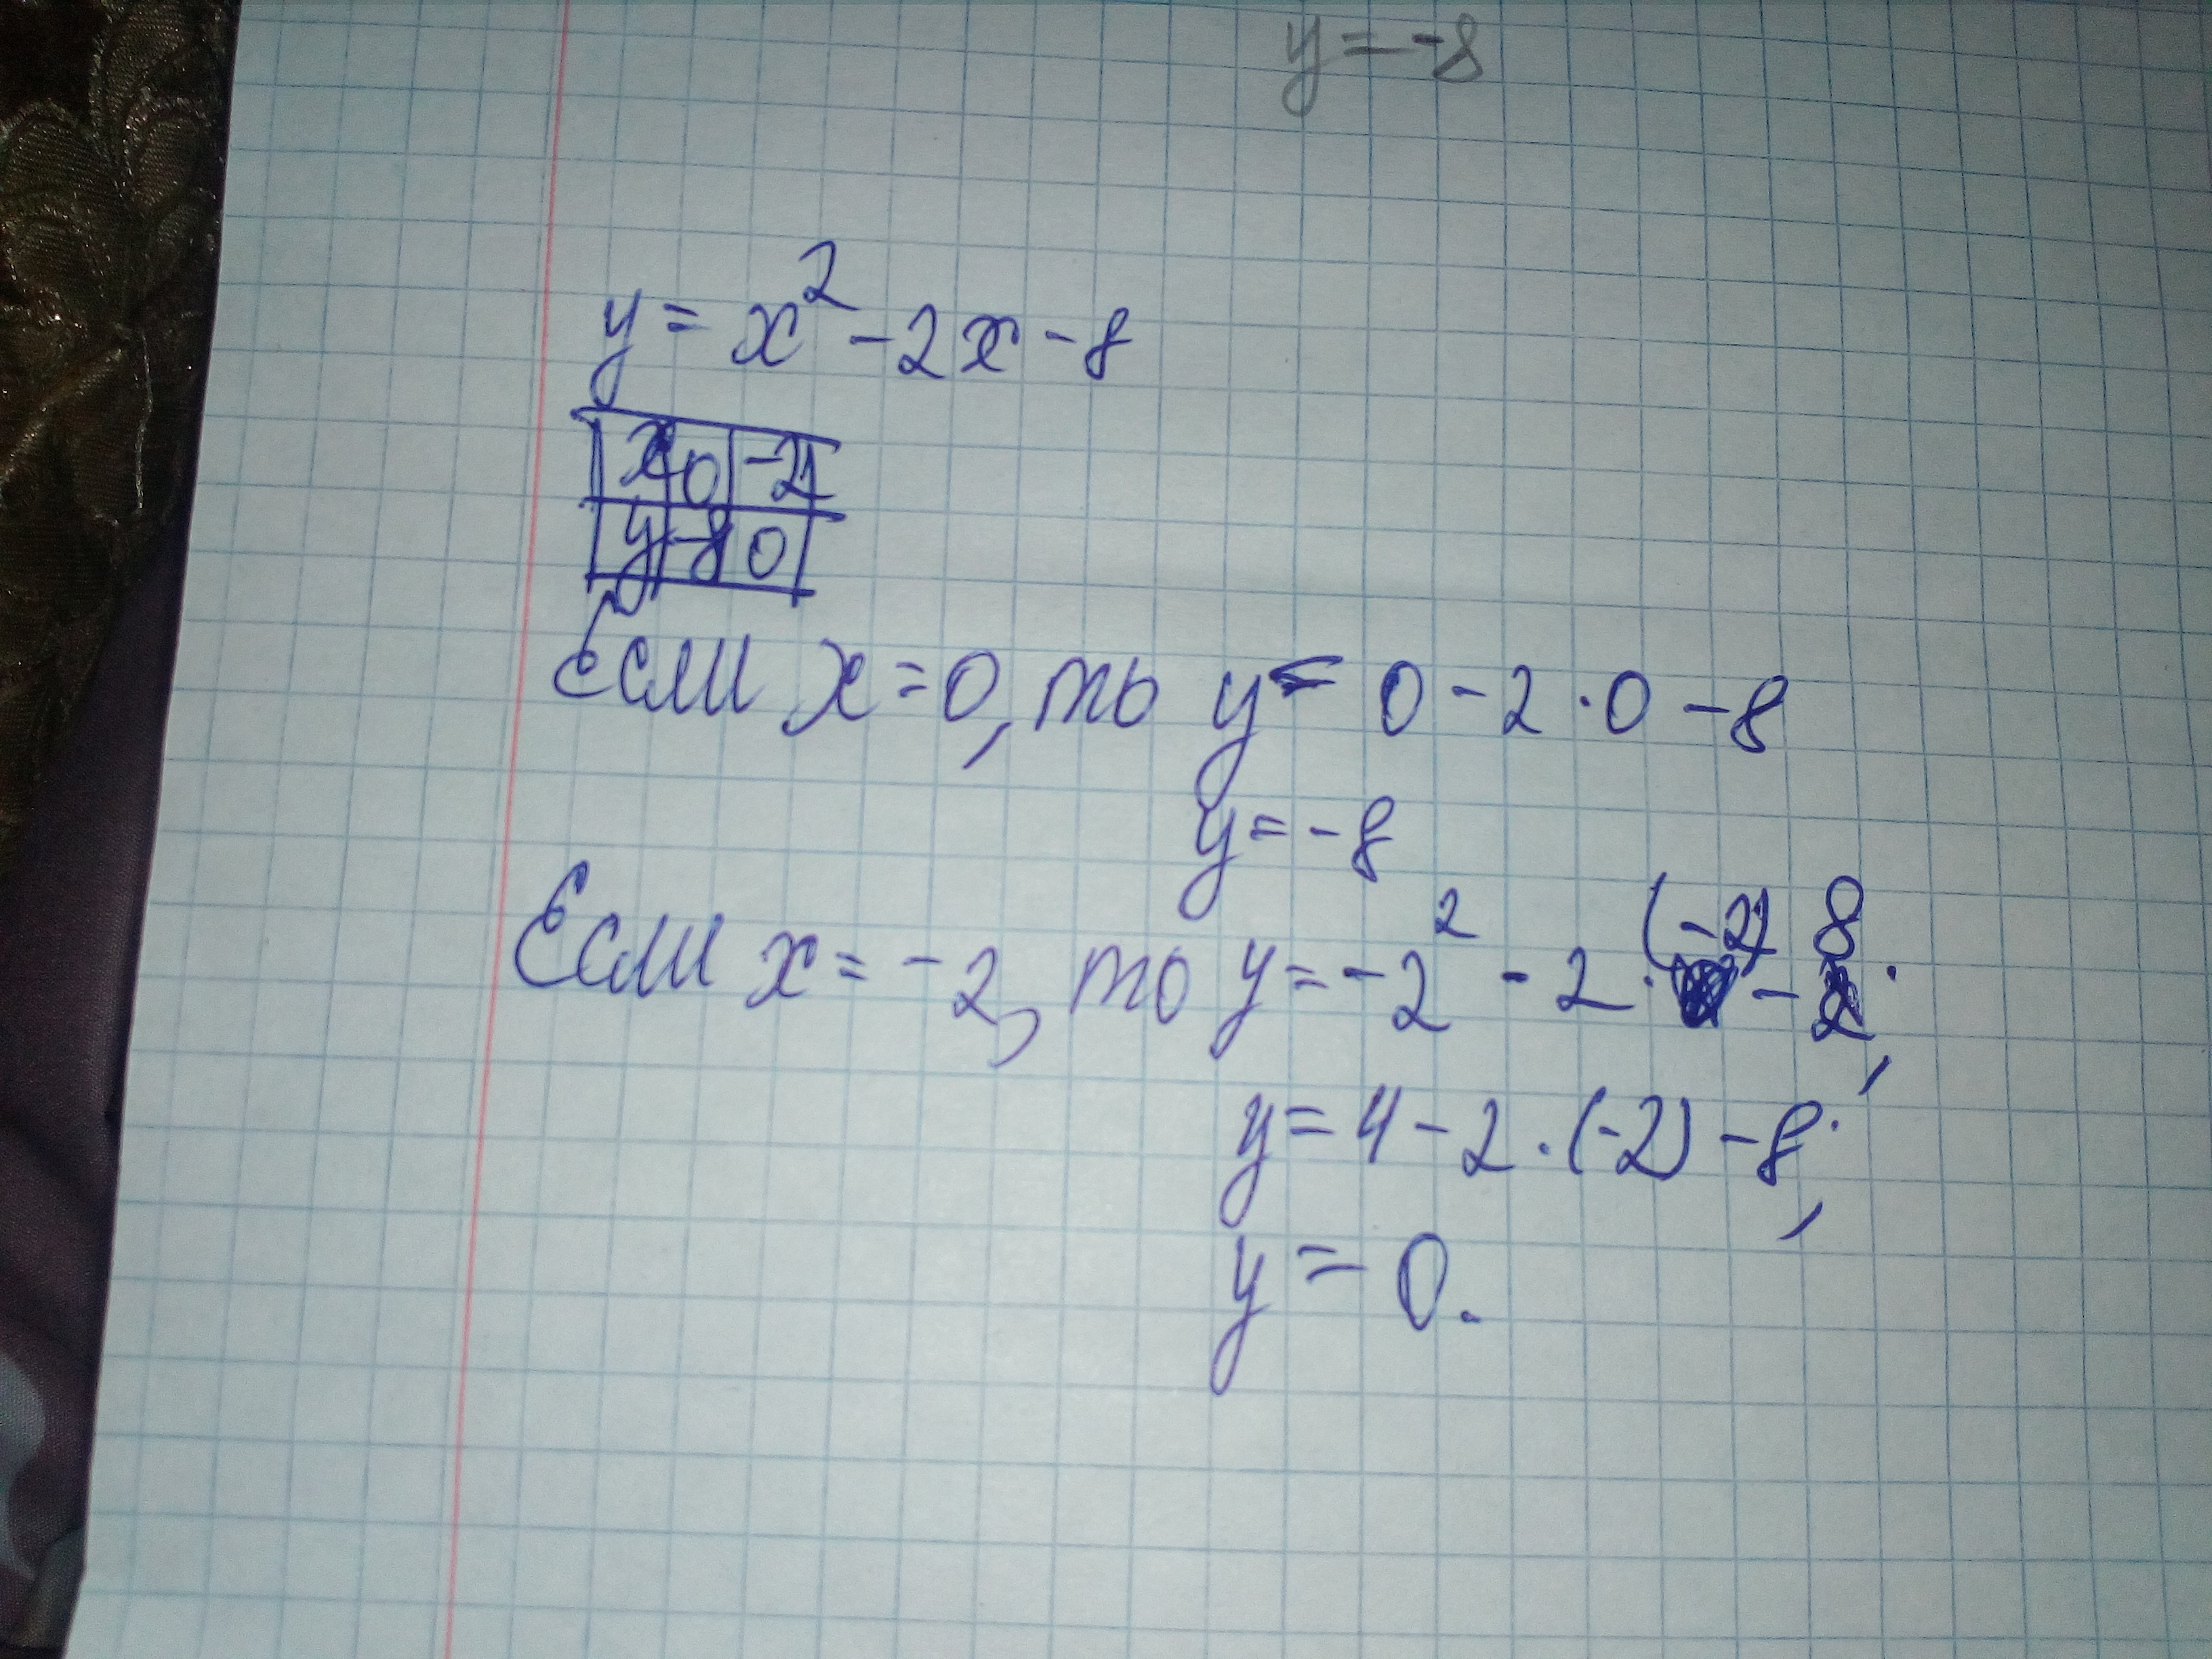 y = -8
y = x² - 2x - 8
x 0 -2
y -8 0
Если x = 0, то y = 0 - 2 · 0 - 8
y = -8
Если x = -2, то y = -2² - 2 · (-2) - 8;
y = 4 - 2 · (-2) - 8;
y = 0.